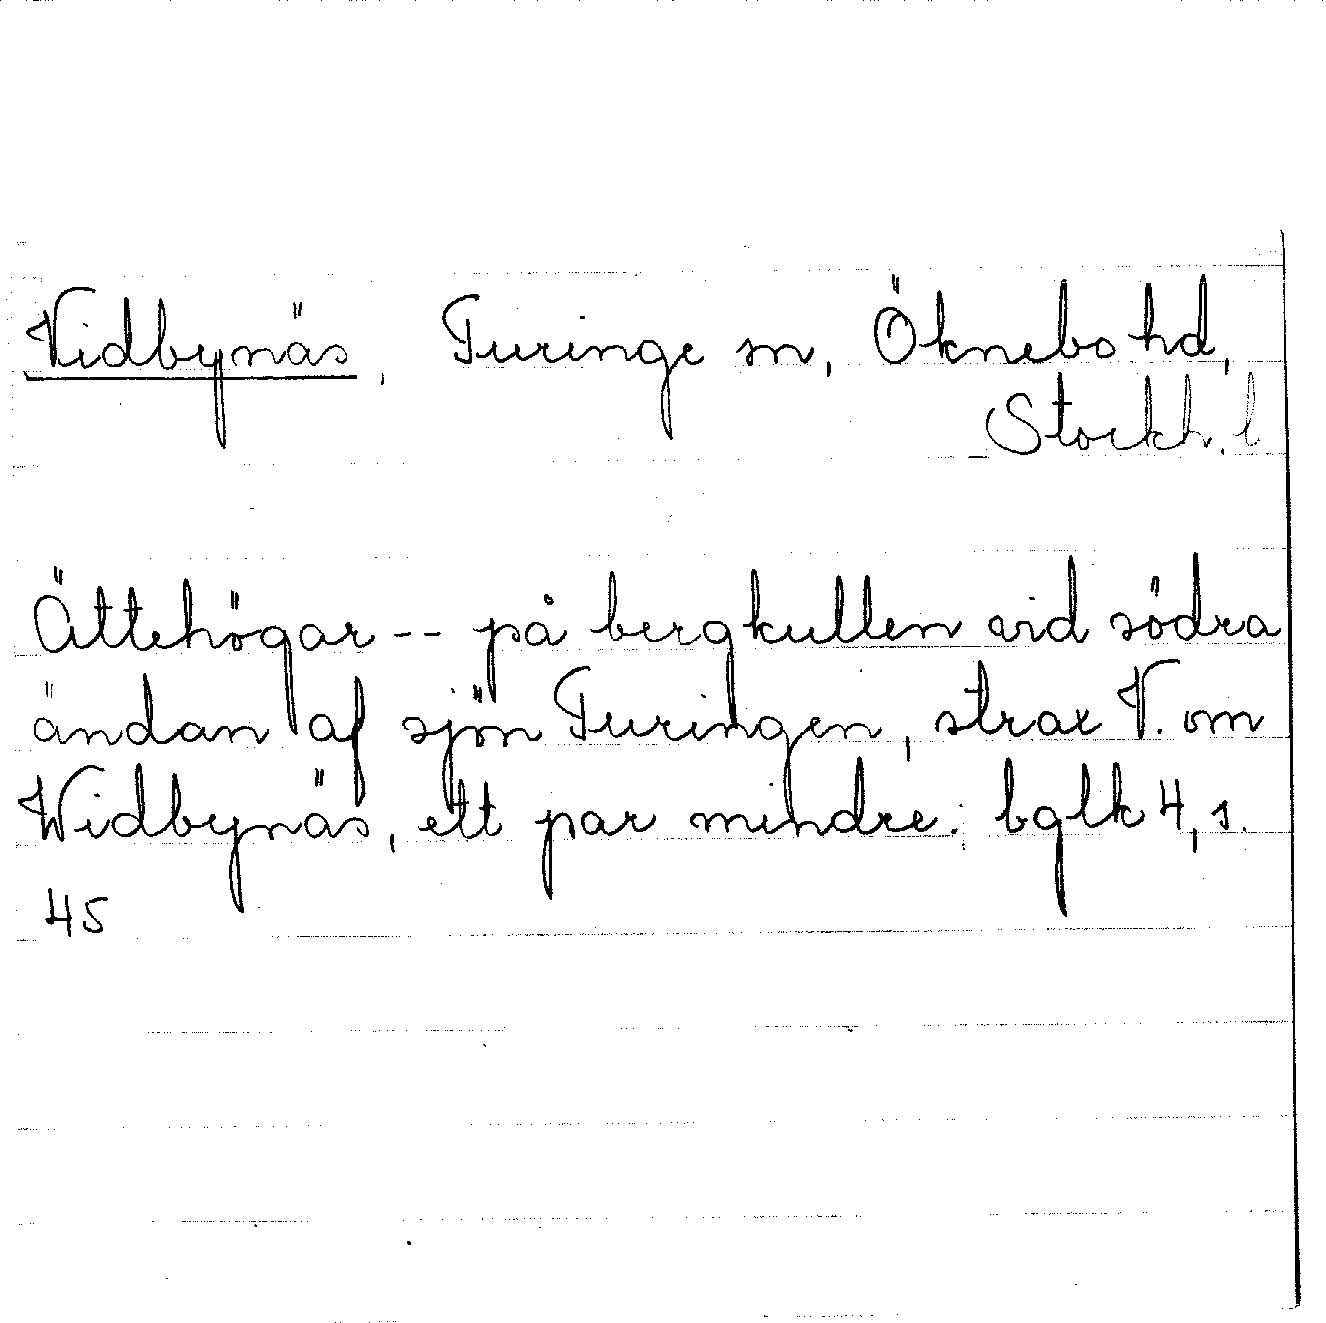 Vidbynäs, Turinge sn, Öknebo hd,
Stockh. l
Ättehögar -- på bergkullen vid södra
ändan af sjön Turingen, strax V. om
Widbynäs, ett par mindre. bglk 4, s.
45